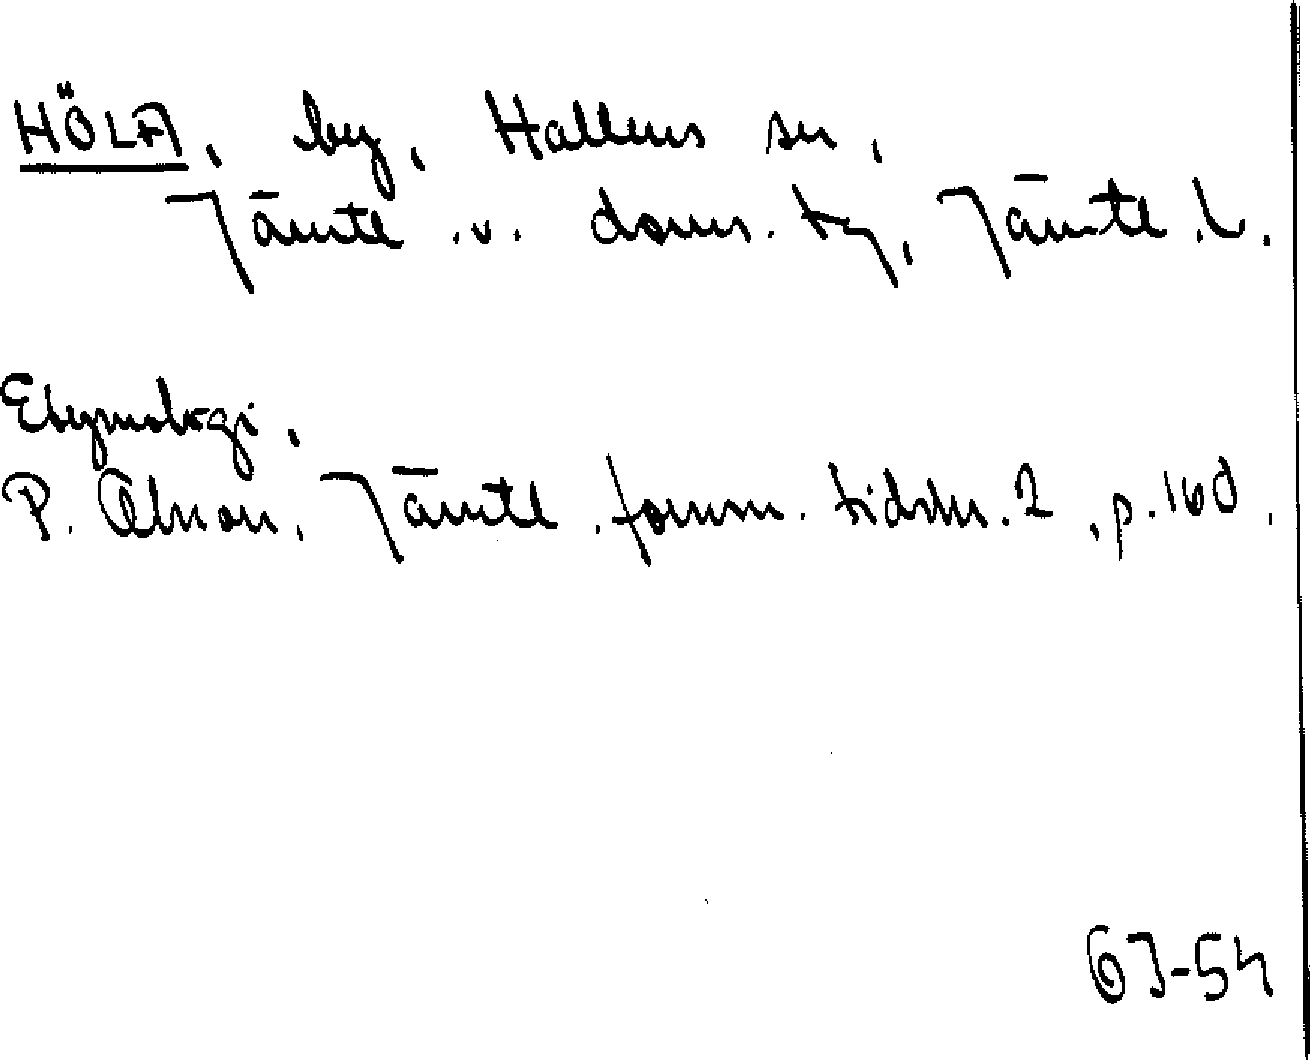 HÖLA, by, Hallens sn,
Jämtl. v. doms. tg, Jämtl. l.
Etymologi,
P. Olsson, Jämtl. fornm. tidskr. 2, p. 160.
63-54